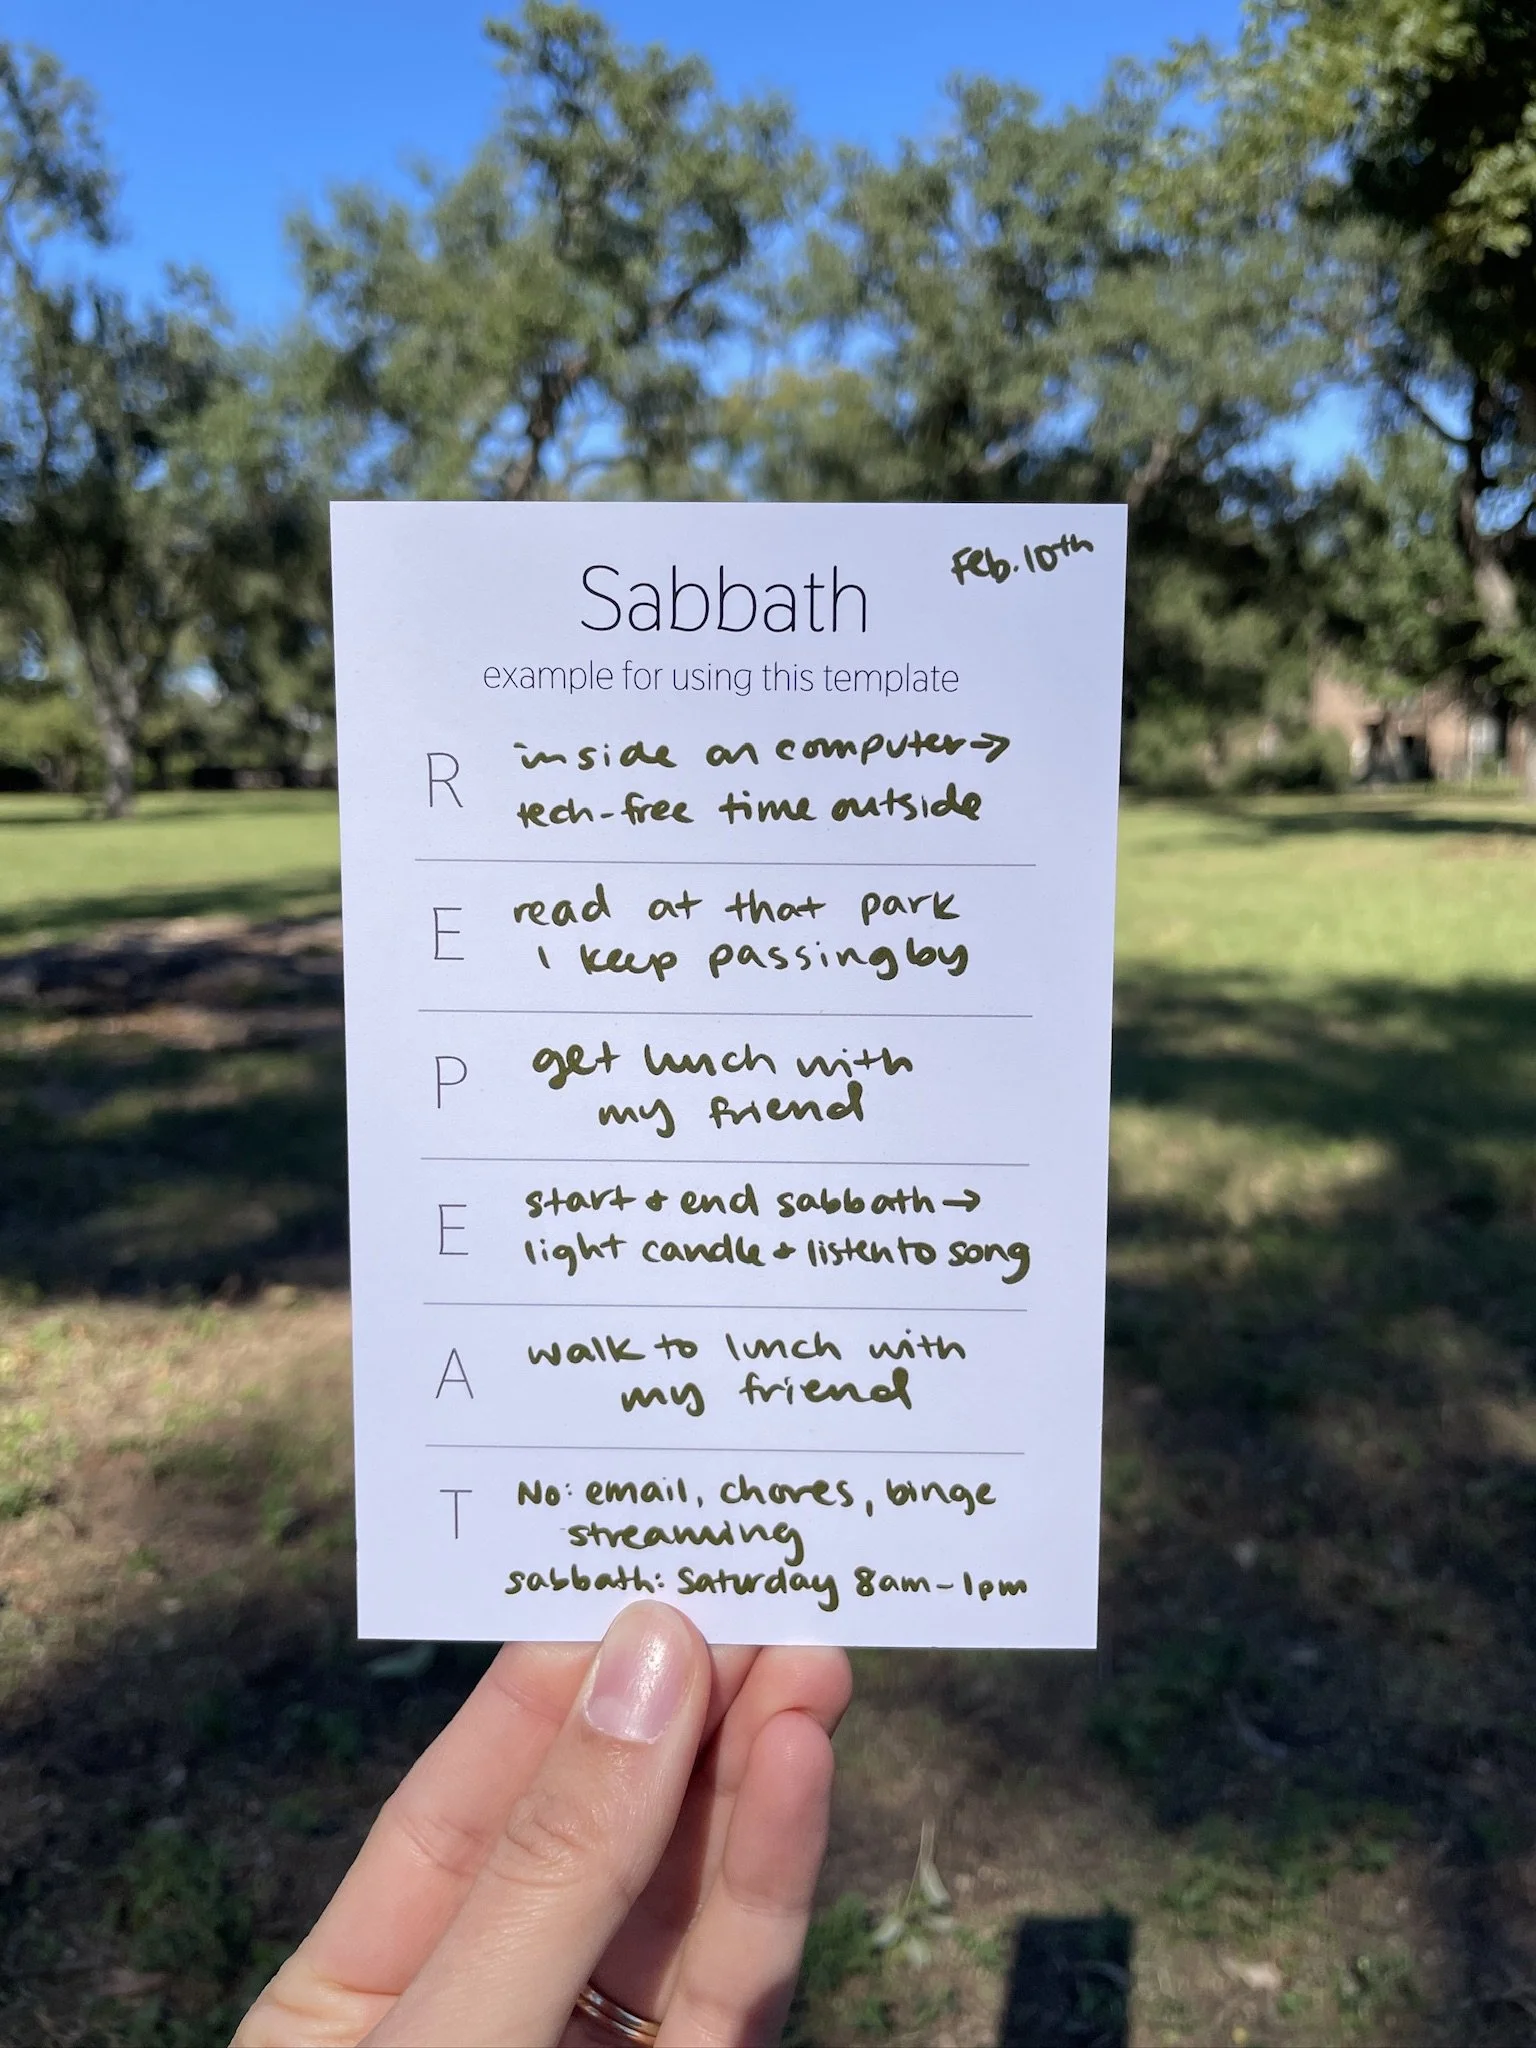 Feb. 10th
Sabbath
example for using this template
R
inside on computer →
tech-free time outside
E
read at that park
I keep passing by
P
get lunch with
my friend
E
start & end sabbath →
light candle & listen to song
A
walk to lunch with
my friend
T
No: email, chores, binge
streaming
sabbath: Saturday 8am-1pm